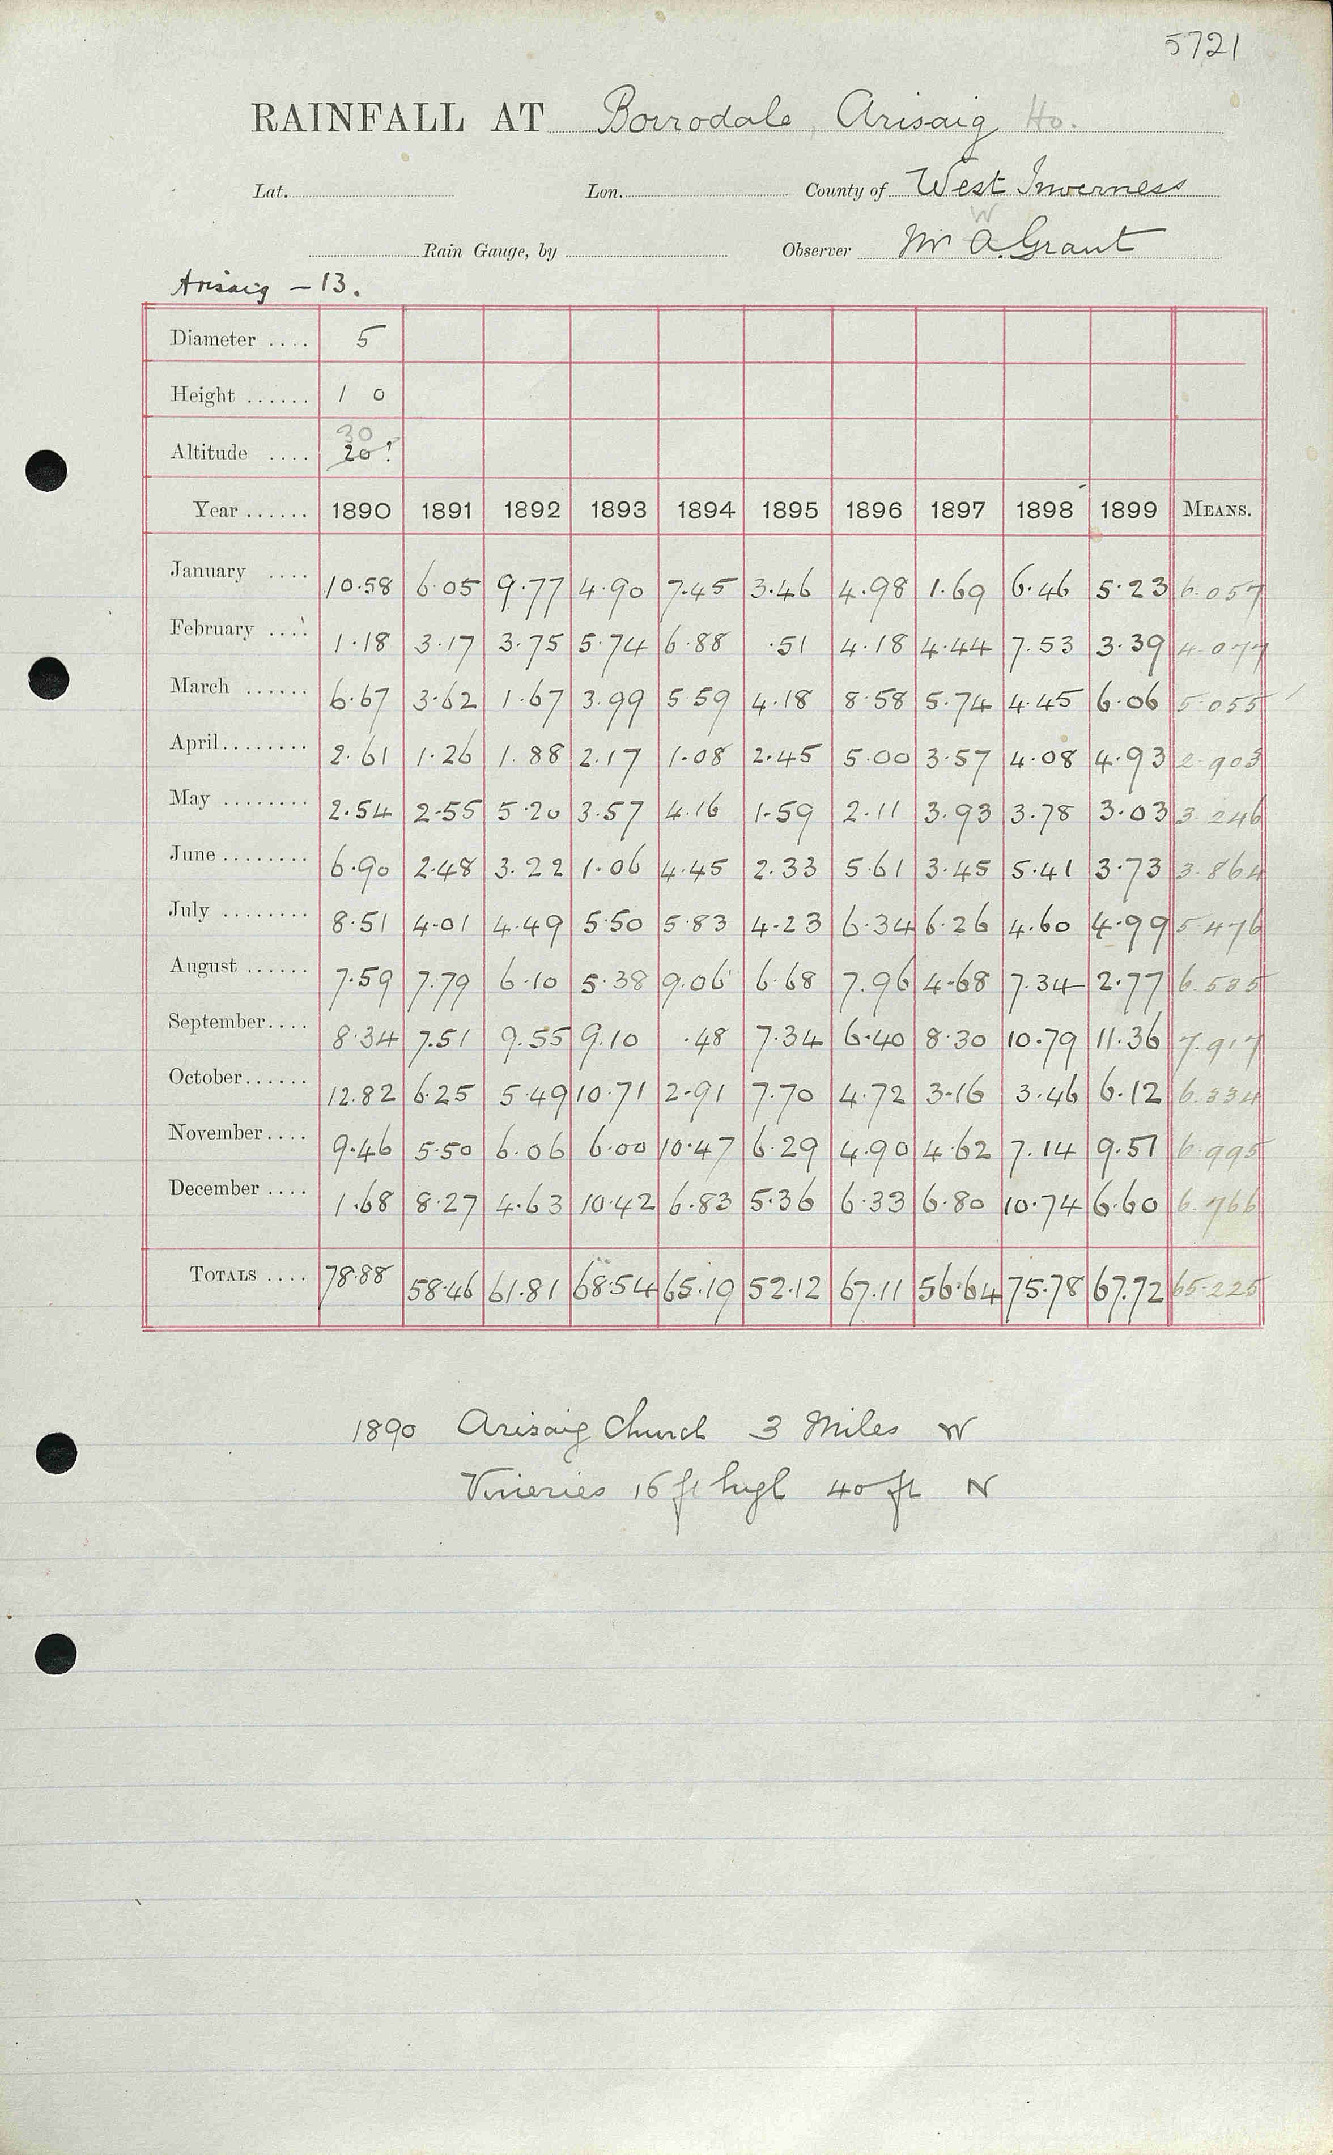 5721
RAINFALL AT Borrodale, Arisaig Ho.
Lat. Lon. County of West Inverness
Rain Gauge, by Observer Mr A. Grant
W
Arisaig - 13.
Diameter .... 5
Height ...... 1 0
30
Altitude .... 20?
Year ...... 1890 1891 1892 1893 1894 1895 1896 1897 1898 1899 MEANS.
January .... 10.58 6.05 9.77 4.90 7.45 3.46 4.98 1.69 6.46 5.23 6.057
February .... 1.18 3.17 3.75 5.74 6.88 .51 4.18 4.44 7.53 3.39 4.077
March ...... 6.67 3.62 1.67 3.99 5.59 4.18 8.58 5.74 4.45 6.06 5.055
April........ 2.61 1.26 1.88 2.17 1.08 2.45 5.00 3.57 4.08 4.93 2.903
May ........ 2.54 2.55 5.20 3.57 4.16 1.59 2.11 3.93 3.78 3.03 3.246
June ........ 6.90 2.48 3.22 1.06 4.45 2.33 5.61 3.45 5.41 3.73 3.864
July ........ 8.51 4.01 4.49 5.50 5.83 4.23 6.34 6.26 4.60 4.99 5.476
August ...... 7.59 7.79 6.10 5.38 9.06 6.68 7.96 4.68 7.34 2.77 6.535
September.... 8.34 7.51 9.55 9.10 .48 7.34 6.40 8.30 10.79 11.36 7.917
October...... 12.82 6.25 5.49 10.71 2.91 7.70 4.72 3.16 3.46 6.12 6.334
November.... 9.46 5.50 6.06 6.00 10.47 6.29 4.90 4.62 7.14 9.51 6.995
December .... 1.68 8.27 4.63 10.42 6.83 5.36 6.33 6.80 10.74 6.60 6.766
TOTALS .... 78.88 58.46 61.81 68.54 65.19 52.12 67.11 56.64 75.78 67.72 65.225
1890 Arisaig Church 3 Miles W
Vineries 16 ft high 40 ft N